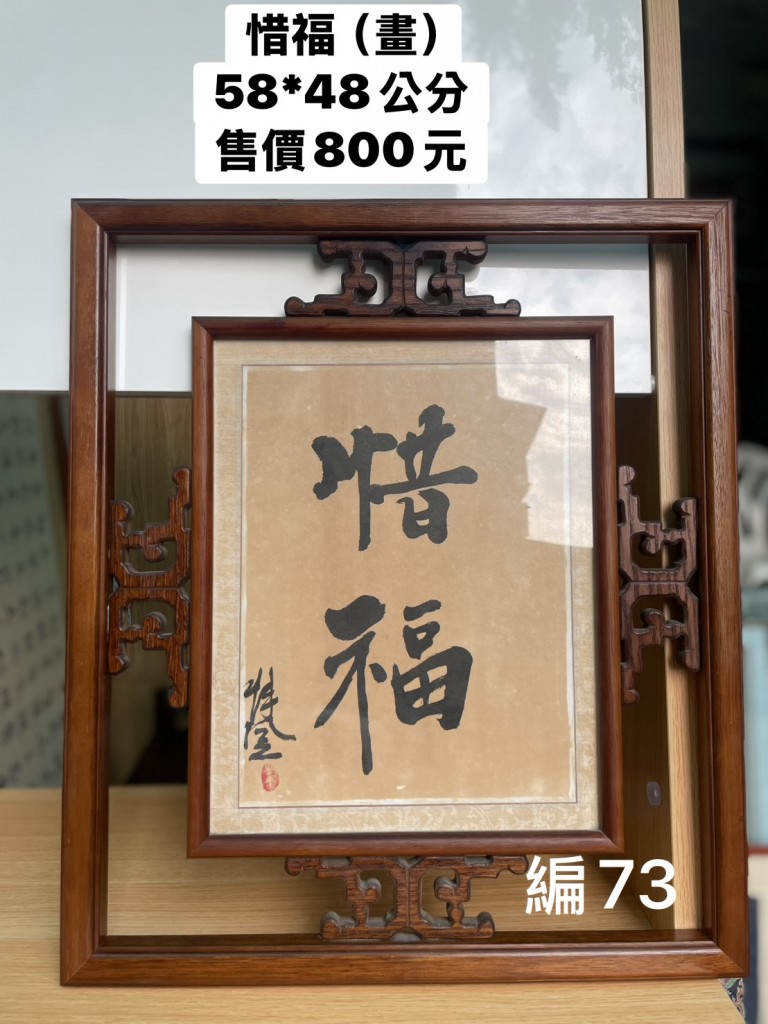 惜福（畫）
58*48公分
售價800元
惜
福
編73